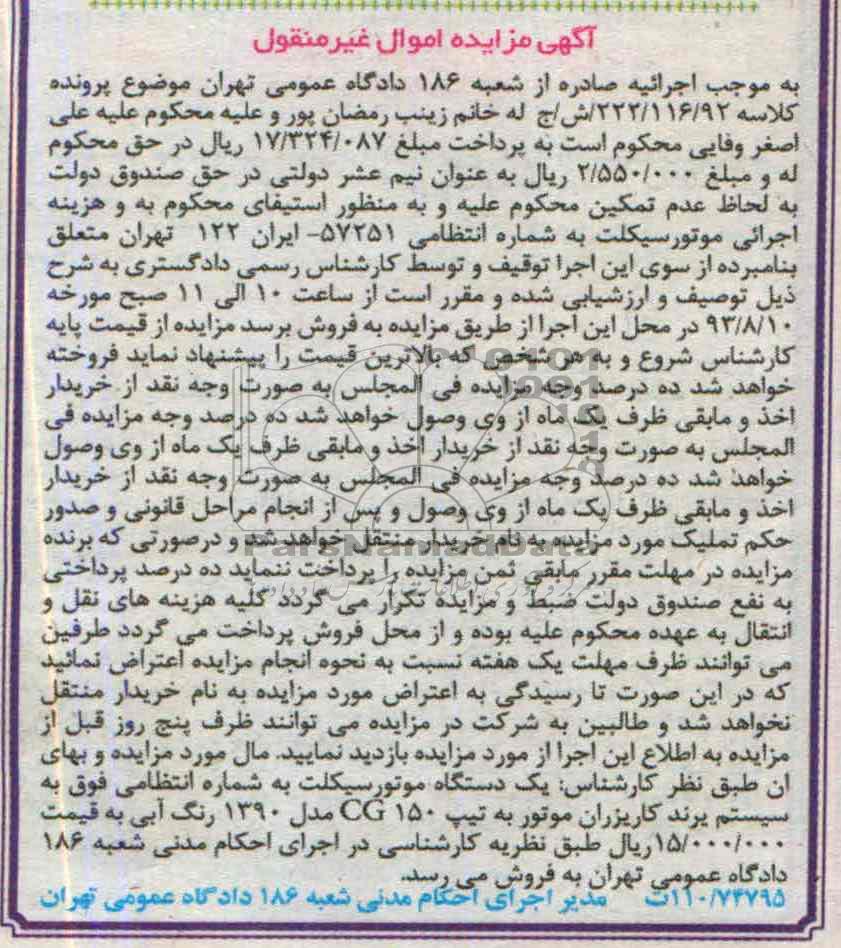 آگهی مزایده اموال غیرمنقول
به موجب اجرائیه صادره از شعبه ۱۸۶ دادگاه عمومی تهران موضوع پرونده
کلاسه ۲۲۲/۱۱۶/۹۲/ش/ج له خانم زینب رمضان پور و علیه محکوم علیه علی
اصغر وفایی محکوم است به پرداخت مبلغ ۱۷/۳۲۴/۰۸۷ ریال در حق محکوم
له و مبلغ ۲/۵۵۰/۰۰۰ ریال به عنوان نیم عشر دولتی در حق صندوق دولت
به لحاظ عدم تمکین محکوم علیه و به منظور استیفای محکوم به و هزینه
اجرائی موتورسیکلت به شماره انتظامی ۵۷۲۵۱- ایران ۱۲۲ تهران متعلق
بنامبرده از سوی این اجرا توقیف و توسط کارشناس رسمی دادگستری به شرح
ذیل توصیف و ارزشیابی شده و مقرر است از ساعت ۱۰ الی ۱۱ صبح مورخه
۹۳/۸/۱۰ در محل این اجرا از طریق مزایده به فروش برسد مزایده از قیمت پایه
کارشناس شروع و به هر شخص که بالاترین قیمت را پیشنهاد نماید فروخته
خواهد شد ده درصد وجه مزایده فی المجلس به صورت وجه نقد از خریدار
اخذ و مابقی ظرف یک ماه از وی وصول خواهد شد ده درصد وجه مزایده فی
المجلس به صورت وجه نقد از خریدار اخذ و مابقی ظرف یک ماه از وی وصول
خواهد شد ده درصد وجه مزایده فی المجلس به صورت وجه نقد از خریدار
اخذ و مابقی ظرف یک ماه از وی وصول و پس از انجام مراحل قانونی و صدور
حکم تملیک مورد مزایده به نام خریدار منتقل خواهد شد و درصورتی که برنده
ParsNamadData
مزایده در مهلت مقرر مابقی ثمن مزایده را پرداخت ننماید ده درصد پرداختی
به نفع صندوق دولت ضبط و مزایده تکرار می گردد کلیه هزینه های نقل و
انتقال به عهده محکوم علیه بوده و از محل فروش پرداخت می گردد طرفین
می توانند ظرف مهلت یک هفته نسبت به نحوه انجام مزایده اعتراض نمائید
که در این صورت تا رسیدگی به اعتراض مورد مزایده به نام خریدار منتقل
نخواهد شد و طالبین به شرکت در مزایده می توانند ظرف پنج روز قبل از
مزایده به اطلاع این اجرا از مورد مزایده بازدید نمایید. مال مورد مزایده و بهای
ان طبق نظر کارشناس: یک دستگاه موتورسیکلت به شماره انتظامی فوق به
سیستم برند کاریزران موتور به تیپ CG ۱۵۰ مدل ۱۳۹۰ رنگ آبی به قیمت
۱۵/۰۰۰/۰۰۰ریال طبق نظریه کارشناسی در اجرای احکام مدنی شعبه ۱۸۶
دادگاه عمومی تهران به فروش می رسد.
۱۱۰/۷۴۷۹۵ت مدیر اجرای احکام مدنی شعبه ۱۸۶ دادگاه عمومی تهران